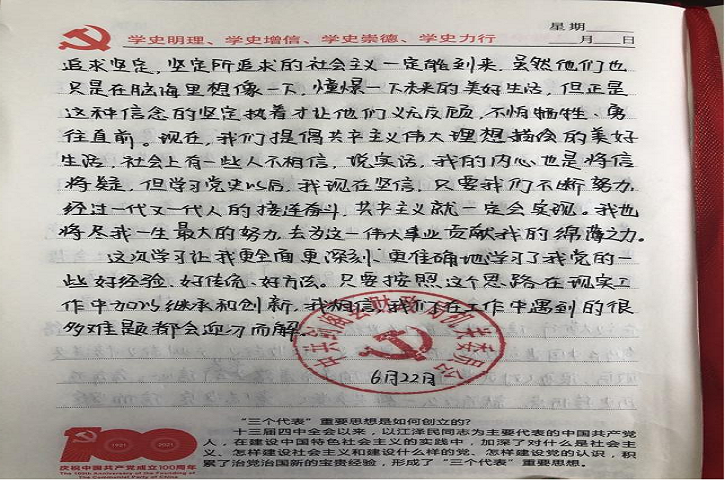 星期
学史明理、学史增信、学史崇德、学史力行
月 日
追求坚定，坚定所追求的社会主义一定能到来。虽然他们也
只是在脑海里想像一下，憧憬一下未来的美好生活，但正是
这种信念的坚定执着才让他们义无反顾，不怕牺牲、勇
往直前。现在，我们提倡共产主义伟大理想描绘的美好
生活，社会上有一些人不相信，说实话，我的内心也是将信
将疑，但学习党史以后，我现在坚信，只要我们不断努力，
经过一代又一代人的接连奋斗，共产主义就一定会实现。我也
将尽我一生最大的努力，去为这一伟大事业贡献我的绵薄之力。
这次学习让我更全面更深刻、更准确地学习了我党的一
些好经验、好传统、好方法。只要按照这个思路在现实工
作中加以继承和创新，我相信我们在工作中遇到的很
多难题都会迎刃而解。
6月22日
100
1921
2021
庆祝中国共产党成立100周年
The 100th Anniversary of the Founding of
The Communist Party of China
“三个代表”重要思想是如何创立的？
十三届四中全会以来，以江泽民同志为主要代表的中国共产党
人，在建设中国特色社会主义的实践中，加深了对什么是社会主
义、怎样建设社会主义和建设什么样的党、怎样建设党的认识，积
累了治党治国新的宝贵经验，形成了“三个代表”重要思想。